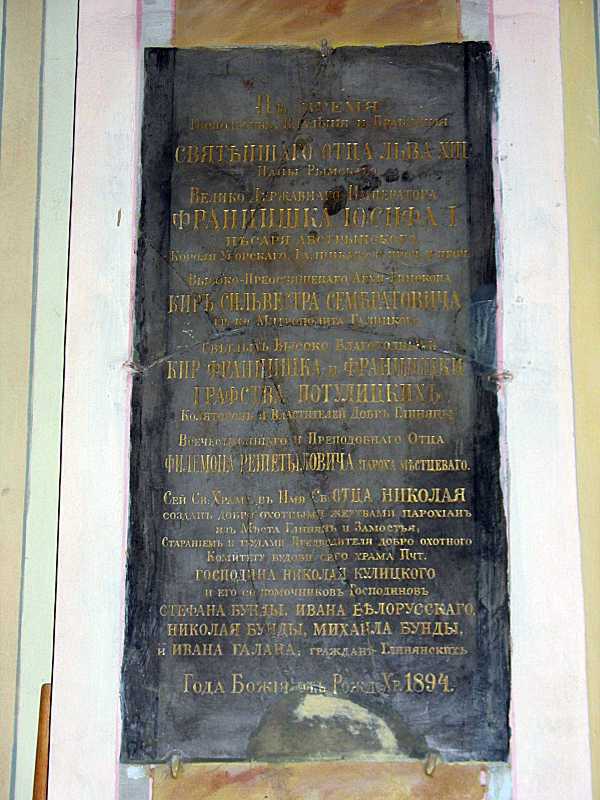 Въ время
Господства, и Правленія
СВЯТѢЙШАГО ОТЦА ЛЬВА XIII
Папы Рымского,
Велико Державнаго Императора
ФРАНЦИШКА ІОСИФА I
ЦѢСАРЯ АВСТРЫЙСКОГО,
Короля Угорскаго, Галицкаго и проч. и проч.
Высоко-Преосвященнаго Архи-Епископа
КИРЪ СИЛЬВЕСТРА СЕМБРАТОВИЧА
гр. ко Митрополита Галицкого
Свѣтлыхъ Высоко Благородныхъ
КИР ФРАНЦИШКА и ФРАНЦИШКИ
ГРАФСТВА ПОТУЛИЦКИХЪ
Коляторовъ и Властителей Добръ Глиняны
Всечестнѣйшаго и Преподобнаго Отца
ФИЛЕМОНА РЕШЕТЫЛОВИЧА пароха мѣстцеваго.
Сей Св. Храмъ въ Имя Св. ОТЦА НИКОЛАЯ
созданъ добро охотными жертвами парохіанъ
изъ Мѣста Глинянъ и Замостья,
Стараніемъ и трудами Предводителя добро охотного
Комитету будовы сего храма Пчт.
ГОСПОДИНА НИКОЛАЯ КУЛИЦКОГО
и его со помочниковъ Господиновъ
СТЕФАНА БУНДЫ, ИВАНА БѢЛОРУССКАГО,
НИКОЛАЯ БУНДЫ, МИХАИЛА БУНДЫ,
и ИВАНА ГАЛАНА, гражданъ Глинянскихъ
Года Божія отъ Рожд. Хр. 1894.